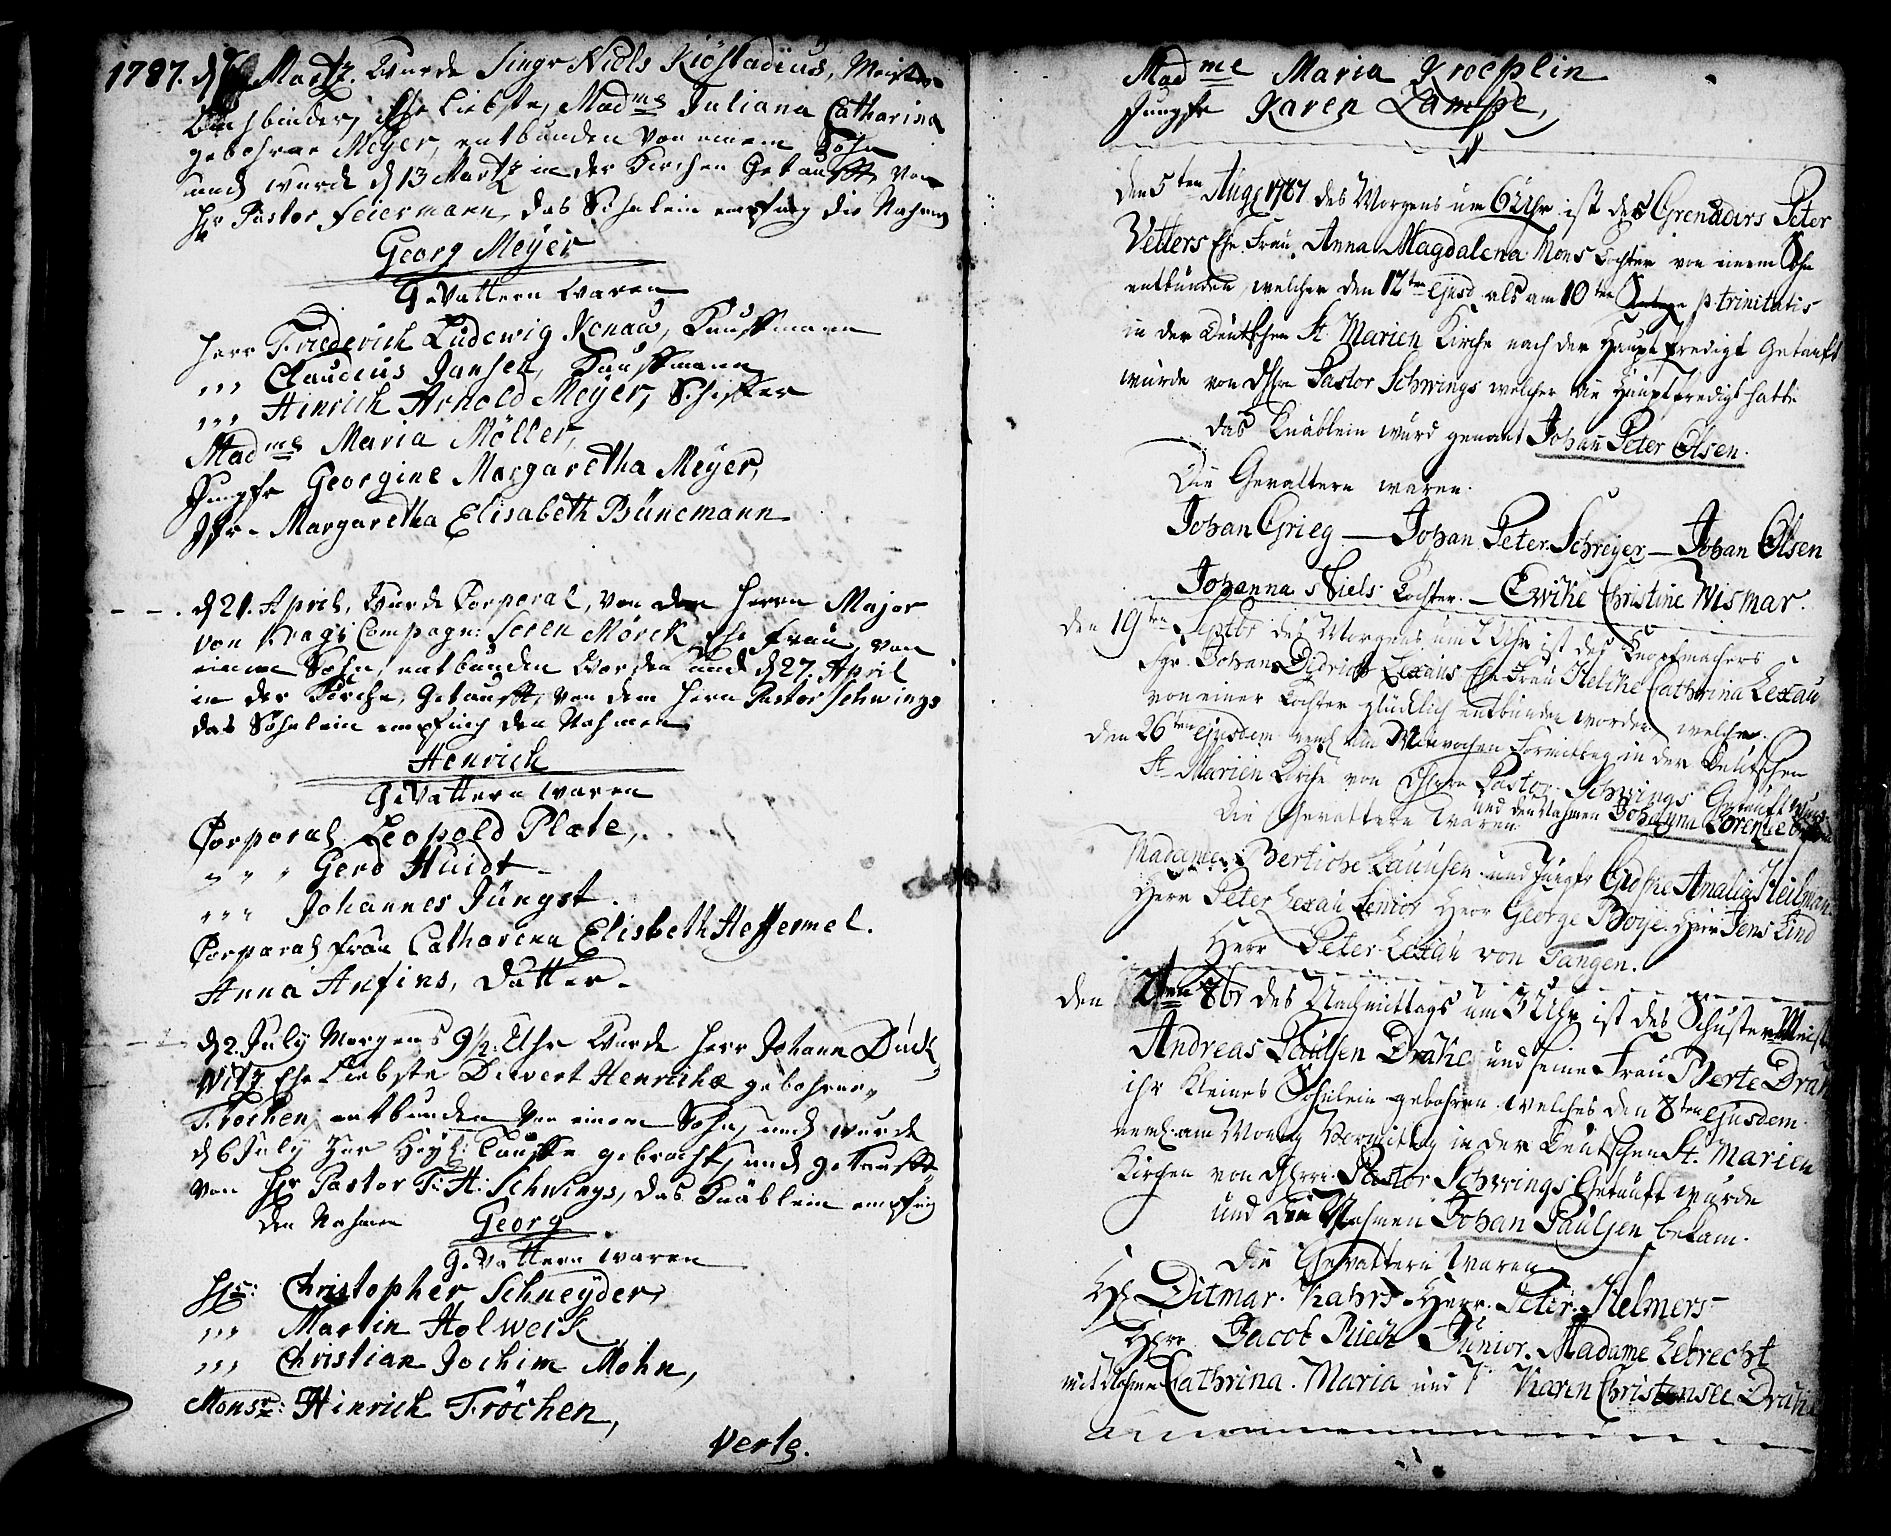 1787. d Martz. Wurde Singr Niels Kiöstadius, Meister
Buchbinder, Ehe Liebste, Madme Juliana Catharina
gebohrne Meyer, entbunden von einem Sohn
und wurde d 13 Martz in der Kirchen Getaufft, von
Hr Pastor Feiermann, das Söhnlein empfing die Nahmen
Georg Meyer
GeVattern Waren
Herr Friederich Ludewig Konau, Kauffmann
,,, Claudius Jansen, Kauffmann
,,, Hinrich Arnold Meyer, Schiffer
Madme Maria Möller,
Jungfr Georgine Margaretha Meyer,
Jfr. Margaretha Elisabeth Bünemann
d 21. April, Wurde Corporal, von der Herrn Major
von Krags Compagn: Soren Mörck Ehe Frau, von
einem Sohn entbunden Worden und d 27. April
in der Kirche, Getaufft, von dem Herrn Pastor Schwings
das Söhnlein empfing den Nahmen
Henrich
GeVattern waren
Corporal Leopold Plate,
,,, Gerd Huidt
,,, Johannes Jüngst.
Corporals Frau Catharina Elisbeth Heffermel.
Anna Anfins, Datter.
d 2. July Morgens 9½ Uhr Wurde Herr Johann Dück
Witz Ehe Liebste Dievert Henricha gebohrne
Trochen, entbunden von einem Sohn, und wurde
d 6 July Zur Heyl: Tauffe gebracht, und getaufft
von Hr Pastor F: H: Schwings, das Knäblein empfing
den Nahmen Georg
GeVattern waren
Hr: Christopher Schneyder,
,,, Martin Holweck
,,, Christian Jochim Mohn,
Monsr: Hinrich Tröchen,
Verte.
Madme Maria Kroeplin
Jungfr Karen Lampe,
den 5ten Aug 1787 des Morgens um 6 Uhr ist des Grenadirs Peter
Vetters Ehe Frau, Anna Magdalena Mons Tochter von einem Sohn
entbunden, welcher den 12ten ejusd. als am 10ten p. trinitatis
in der Deutschen St Marien Kirche nach der Haupt Predigt Getauft
wurde von Hrn Pastor Schwings welcher die Haupt Predigt hatte
das Knäblein wurd genant Johan Peter Olsen.
Die Gevattern waren
Johan Grieg — Johan Peter Schreyer — Johan Olsen
Johanna Niels Tochter. — Ewike Christine Wismar.
den 19ten Septbr des Morgens um 2 Uhr ist des Knopfmachers
Sgr. Johan Didrich Lexaus Ehe Frau Helche Cathrina Lexau
von einer Tochter glücklich entbunden worden welche
den 26ten ejusdem am Mitwochen Formittag in der Deutschen
St Marien Kirche von Hrn Pastor Schwings Getauft wurd
und den Nahmen
Die Gevattern waren
Madame Bertiche Lauusen und Jungfr Amalia Heilman
Herr Peter Lexau Senior Herr George Boye. Herr Jens Lind
Herr Peter Lexau von Tangen.
den 2ten 8br des Nachmittags um 3 Uhr ist des Schuster Meist
Andreas Paulsen Drahe und seine Frau Berte
ihr kleines Söhnlein gebohren welches den 8ten ejusdem.
am Montag Vormittag in der Deutschen St. Marien
Kirchen von Hrrn Pastor Schwings Getauft wurde
und den Nahmen Johan Paulsen bekam.
Die Gevattern Waren
Hr Ditmar. Kahrs. Herr. Peter. Helmers
Hrr Jacob Rieck Junior. Madame Lebrecht
mit Nahmen Cathrina. Maria und Karen Christensee